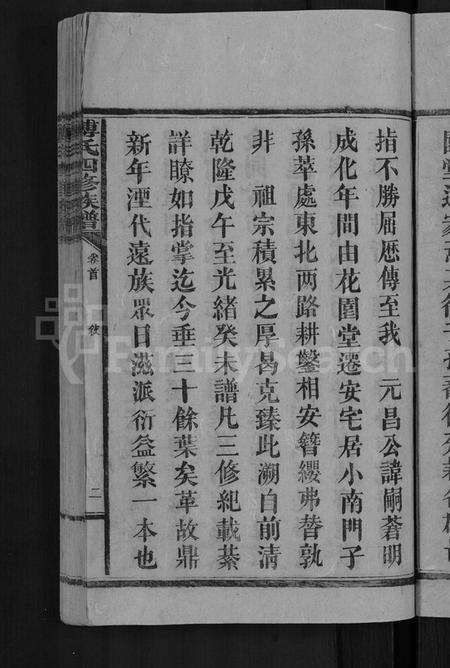 指不勝屈厯傳至我 元昌公諱嗣蒼明
成化年間由花園堂遷安宅居小南門子
孫萃處東北两路耕鑿相安簪纓弗替孰
非 祖宗積累之厚曷克臻此溯自前清
乾隆戊午至光緒癸未譜凡三修紀載綦
詳瞭如指掌迄今垂三十餘葉矣革故鼎
新年湮代遠族眾日滋派衍益繁一本也
氏四修族譜
卷首
二
FamilySearch